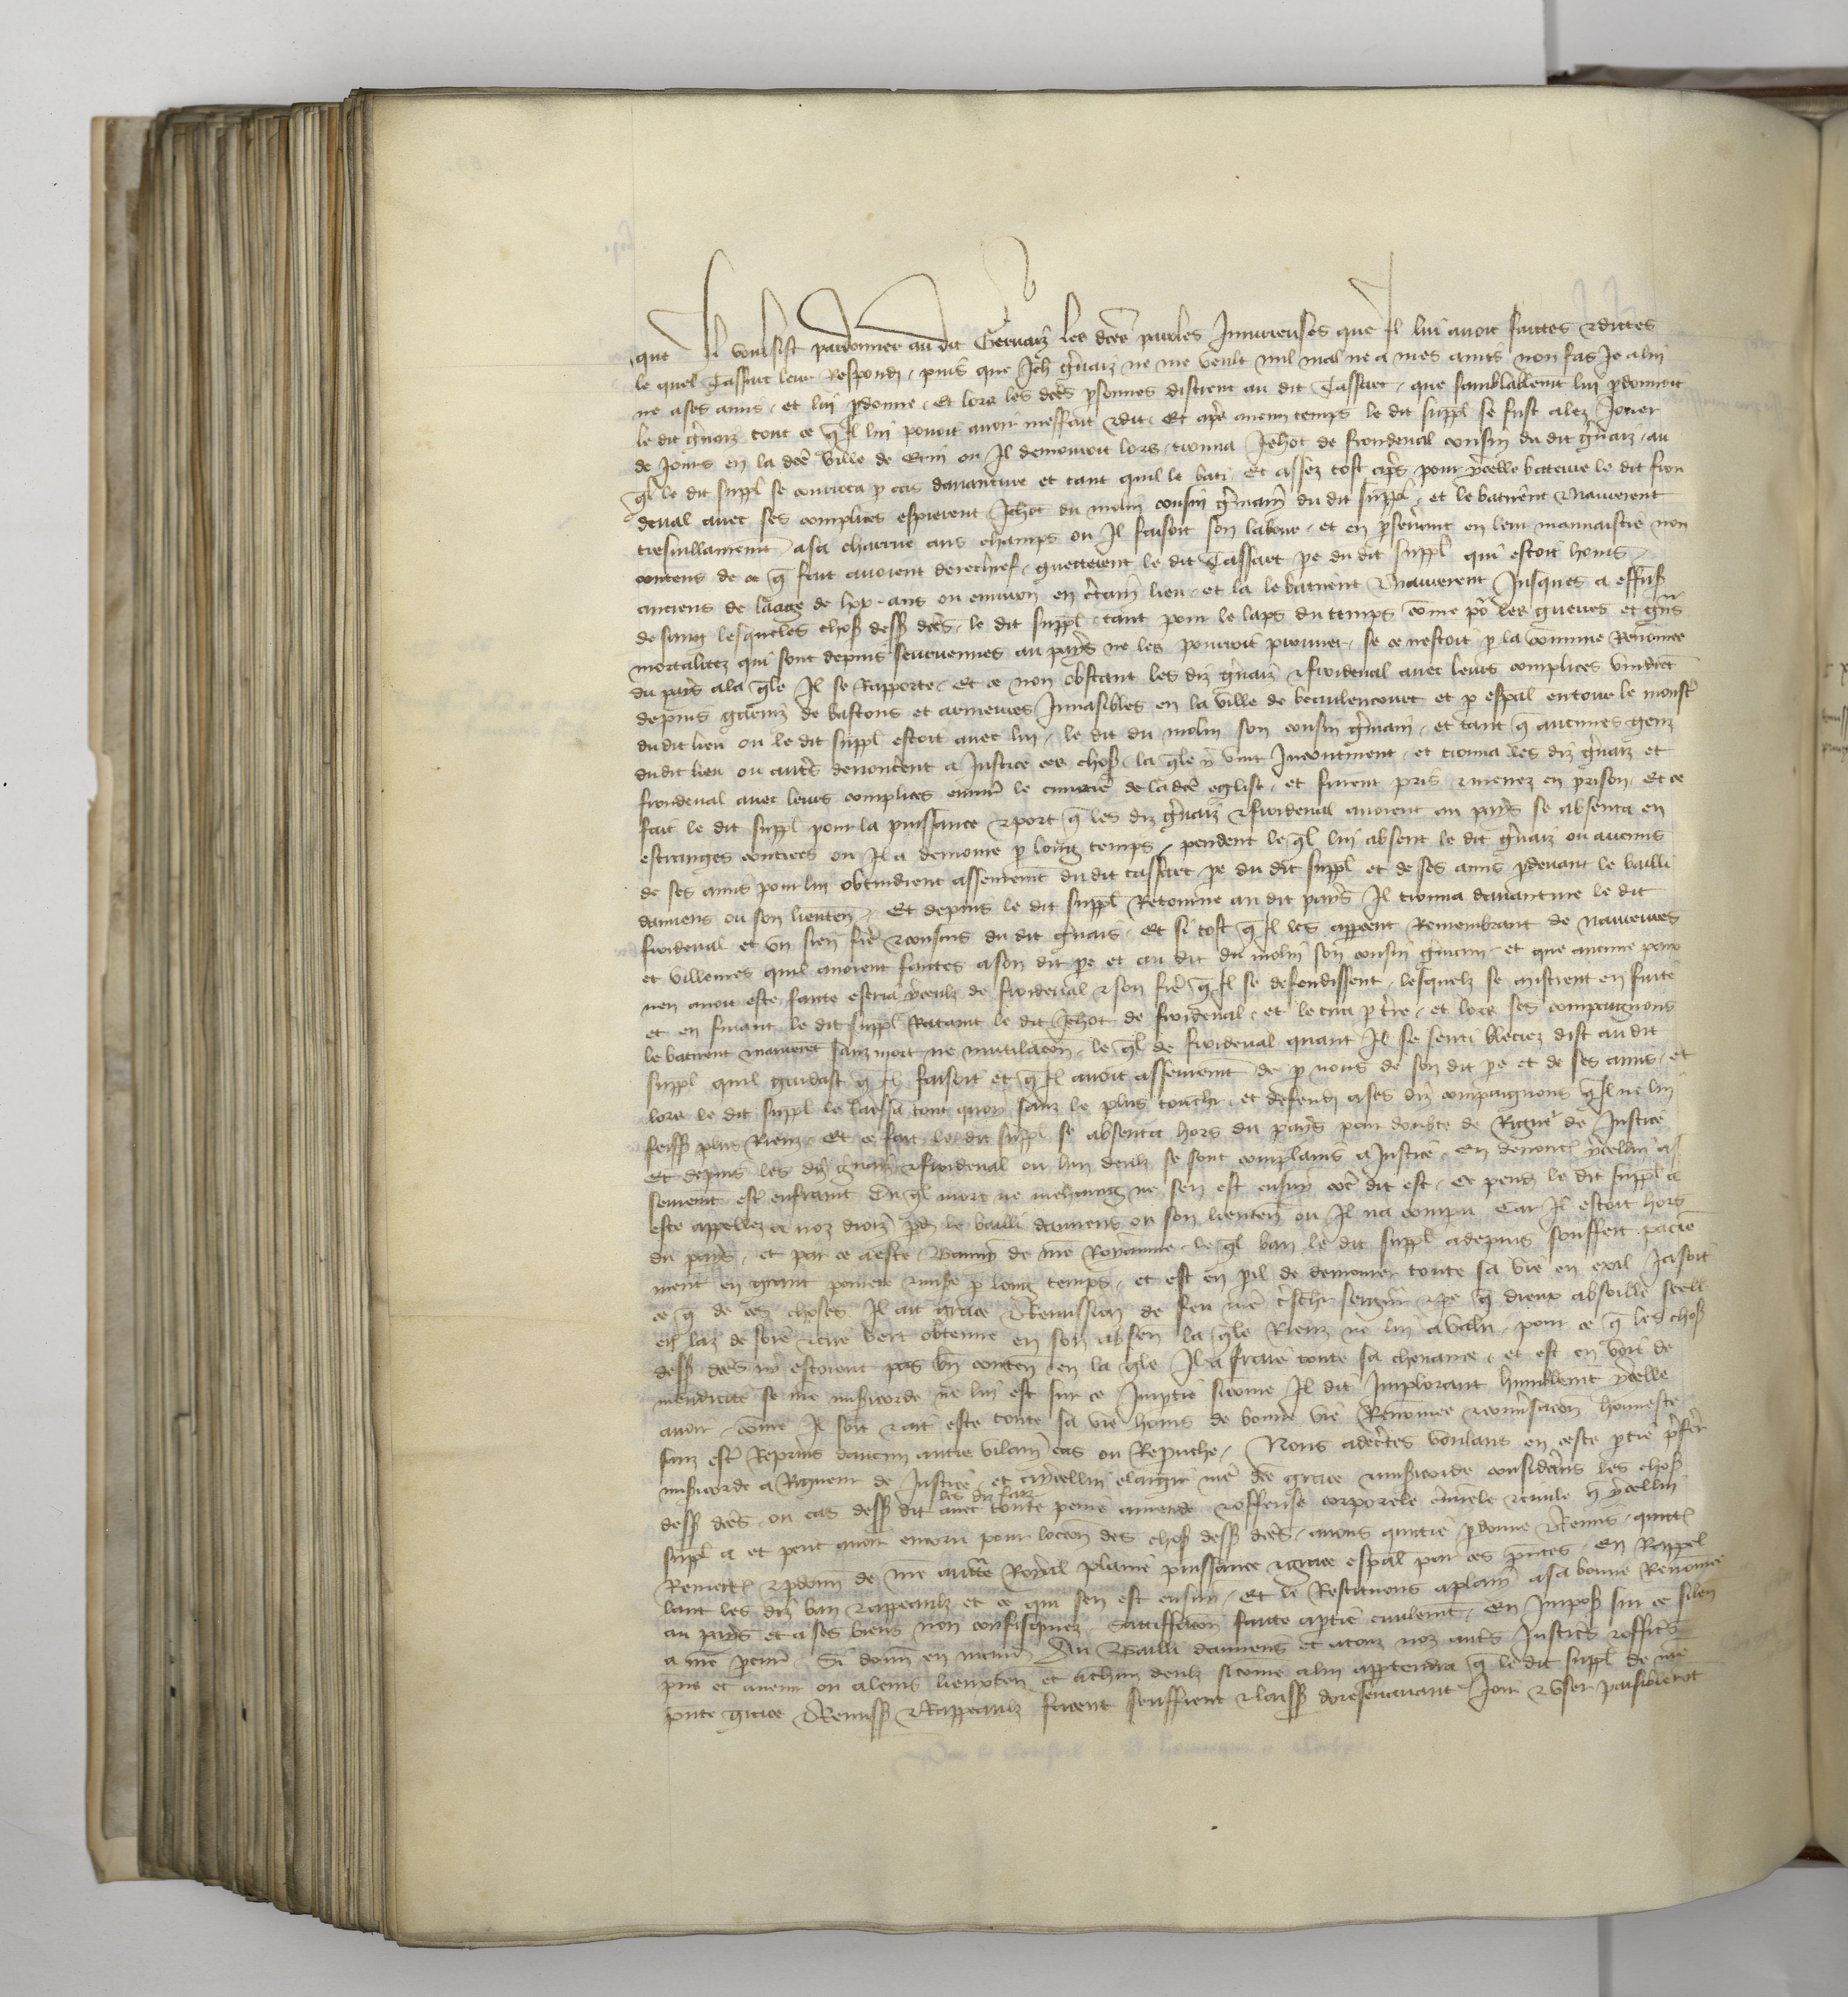 que Il voulsist pardonner au dit Gervaiz les dcēs paroles Iniurieuses que Il lui avoit faictes & dictes
le quel Cassart leur Respondi, puis que Jeh gr̄vaiz ne me veult nul mal ne a mes amis non fas Je a lui
ne a ses amis, et lui p̱donne, Et lors les dcēs p̱sonnes distrent au dit Cassart, que semblablemt̄ lui p̱donnoit
le dit gr̄vaiz tout ce q̄ Il lui povoit avoir meffait & dit, Et ap̄s aucun temps le dit suppl̄ se fust alez Jouer
de Jours en la dcē ville de ou Il demouroit lors, trouva Jehot de froideval cousin du dit gr̄vaiz, au
q̄l le dit suppl̄ se p̱ cas daventure et tant quil le bati, Et assez tost ap̄s pour ycelle bateure le dit froi
deval avec ses complices espierent Jehot du molin cousin gr̄main du dit suppl̄, et le batirent & navrerent
tresvillainemt̄ a sa charrue aus champs ou Il faisoit son labour, et en p̱sev̄ant en leur mauvaistie non
contens de ce q̄ fait avoient derechief, guetterent le dit Cassart p̱e du dit suppl̄ qui estoit homs
anciens de laage de lxx ans ou environ en c̄tain lieu, et la le batirent & navrerent Jusques a effus̄
de sang lesqueles chos̄ dess̄ dcēs, le dit suppl̄, tant pour le laps du temps cōme po᷑ les guerres et gn̄s
mortalitez qui sont depuis seurvenues au pays ne les pourroit prouver, se ce nestoit p̱ la commune Renomee
du pays a la q̄le Il se Rapporte, Et ce non obstant les diz gr̄vaiz & froideval avec leurs complices vindrēt
depuis garniz de bastons et armeures Invasibles en la ville de beaulencourt et p̱ esp̄al entour le monst̄
du dit lieu ou le dit suppl̄ estoit avec lui, le dit du molin son cousin gr̄main, et tant q̄ aucunes genz
du dit lieu ou aut̄s denoncerent a Justice ces chos̄, la q̄le y vint Incontinent, et trouva les diz gr̄vaiz et
froideval avec leurs complices le cimitie de la dcē eglise, et furent pris & menez en prison, Et ce
fait le dit suppl̄ pour la puissance & port q̄ les diz gr̄vaiz & froideval avoient au pays se absenta en
estranges contrees ou Il a demoure p̱ long temps, pendent le q̄l lui absent le dit gr̄vaiz ou aucuns
de ses amis pour lui obtindrent asseuremt̄ du dit cassart p̱e du dit suppl̄ et de ses amis p̱devant le bailli
damiens ou son lieuten̄, Et depuis le dit suppl̄ Retourne au dit pays Il trouva daventure le dit
froideval et un sien frē & cousins du dit gr̄vais, Et si tost q̄ Il les app̱cent Remembrant de navreures
et villenies quil avoient faictes a son dit p̱e et au dit du molin son cousin gr̄main, et que aucune paix
nen avoit este faicte escria yceulz de froideval & son frē q̄ Il se defendissent, lesquelz se mistrent en fuite
et en fuiant le dit suppl̄ Rataint le dit Jehot de froideval, et le rua p̱ tr̄re, et lors ses compaignons
le batirent navrerēt sanz mort ne mutilacōn, le q̄l de froideval quant Il se senti bleciez dist au dit
suppl̄ quil gardast q̄ Il faisoit et q̄ Il avoit asseuremt̄ de p̱ nous de son dit p̱e et de ses amis, et
lors le dit suppl̄ le laissa tout quoy sanz le plus touchr̄, et defendi a ses diz compaignons q̄ Il ne lui
feiss̄ plus Riens, Et ce fait le dit suppl̄ se absenta hors du pays pour doubte de Rigue᷑ de Justice
Et depuis les diz gr̄vaiz & froideval ou lun deulz se sont complains a Justice, en denonc̄ ycellui as
seuremt̄ est̄ enfraint Du q̄l mort ne mehaing ne sen est ensuy cōe dit est, Et pend̄ le dit suppl̄ a
este appellez a noz droiz p̱d̄ le bailli damiens ou son lieuten̄ ou Il na compu Car Il estoit hors
du pays, et par ce a este Banniz de nr̄e Royaume, le q̄l ban le dit suppl̄ a depuis souffert paciē
ment en grant povrete & mise᷑ p̱ long temps, et est en p̱il de demourer toute sa vie en exil Jasoit
ce q̄ de ces choses Il ait grace & Remission de feu nr̄e t̄schr̄ seign᷑ & p̱e q̄ dieux absoille scell̄
en laz de soie & cire vert obtenue en son absen̄ la q̄le Riens ne lui a valu, pour ce q̄ les chos̄
dess̄ dcēs ny estoient pas bn̄ conten̄ en la q̄le Il a fraie toute sa chevance, et est en voie de
mendicite se nr̄e mis̄icorde ne lui est sur ce Impartie sicōme Il dit Implorant humblemt̄ ycelle
avoir, cōme Il soit & ait este toute sa vie homs de bonne vie Renomee & conv̄sacōn honneste
sanz estr̄ Reprins daucun autre vilain cas ou Reprouche, Nous adecertes voulans en ceste p̱tie p̄fer̄
mis̄icorde a Rigueur de Justice, et a ycellui elargir nr̄e dcē grace & mis̄icorde consid̄ans les chos̄
les diz faiz
dess̄ dcēs ou cas dess̄ dit avec toute peine amende & offense corporele c̄minele & civile q̄ ycellui
suppl̄ a et peut avoir encoru pour loccōn des chos̄ dess̄ dcēs, avons quictie p̱donne & Remis, quict̄
Remett̄ & p̱donn̄ de nr̄e auctē Royal plaine puissance & grace esp̄al par ces p̄ntes, En Rappel
lant les diz ban & appeaulz et ce qui sen est ensuy, Et le Restituons a plain a sa bonne Renomee
au pays et a ses biens non confisquez, Satisffacōn faicte a p̱tie civilemt̄, en Impos̄ sur ce silen
a nr̄e p̱cure᷑, Si donn̄ en mandemt̄ Au Bailli damiens et a touz noz aut̄s Justic̄s & officr̄s
p̄ns et avenir ou a leurs lieuxten̄ et a chūn deulz sicōme a lui app̱tendra q̄ le dit suppl̄ de nr̄e
p̄nte grace & Remiss̄ & Rappeaulz facent seuffrent & laiss̄ doresenavant Joir & user paisiblemt̄